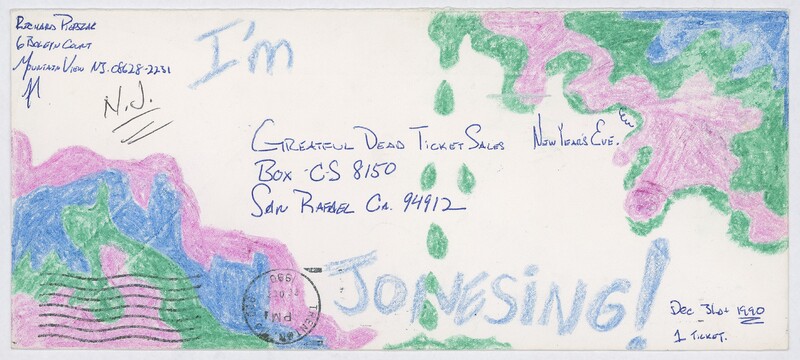 Richard
6 Boleyn Court
Mountain View NJ. 08628-2231
N.J.
I'm
Greatful Dead Ticket Sales New Year's Eve.
Box CS 8150
San Rafael Ca. 94912
JONESING!
PM
Dec 31st 1990
1 Ticket.